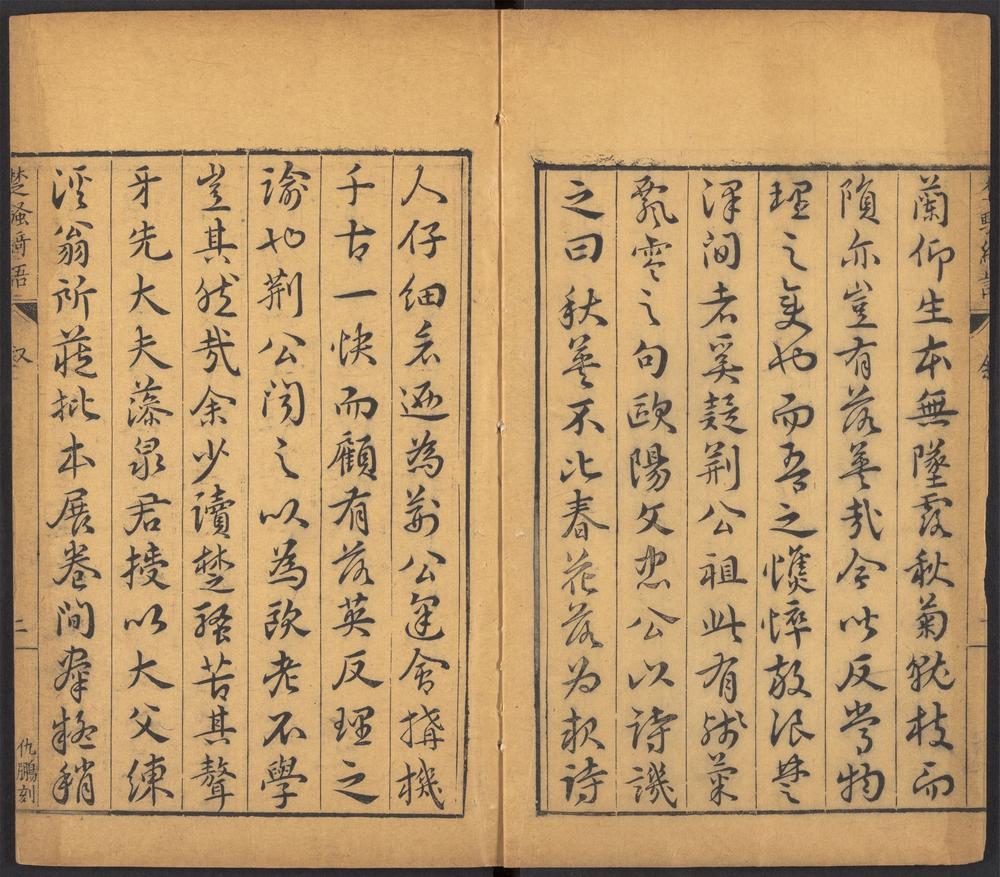 蘭仰生本無墜露秋菊就枝而
隕亦豈有落英哉今此反常物
理之變也而吾之憔悴放浪楚
澤間者奚疑荆公祖此有殘菊
飄零之句歐陽文忠公以詩譏
之曰秋英不比春花落为报詩
人仔細看遂為荊公搆機
千古一快而顧有落英反理之
諭也荆公聞之以為欧老不學
豈其然哉余少讀楚騷苦其聱
牙先大夫藻泉君授以大父練
溪翁所蔵批本展卷間稍
楚騷綺語 叙 二 仇鵬刻